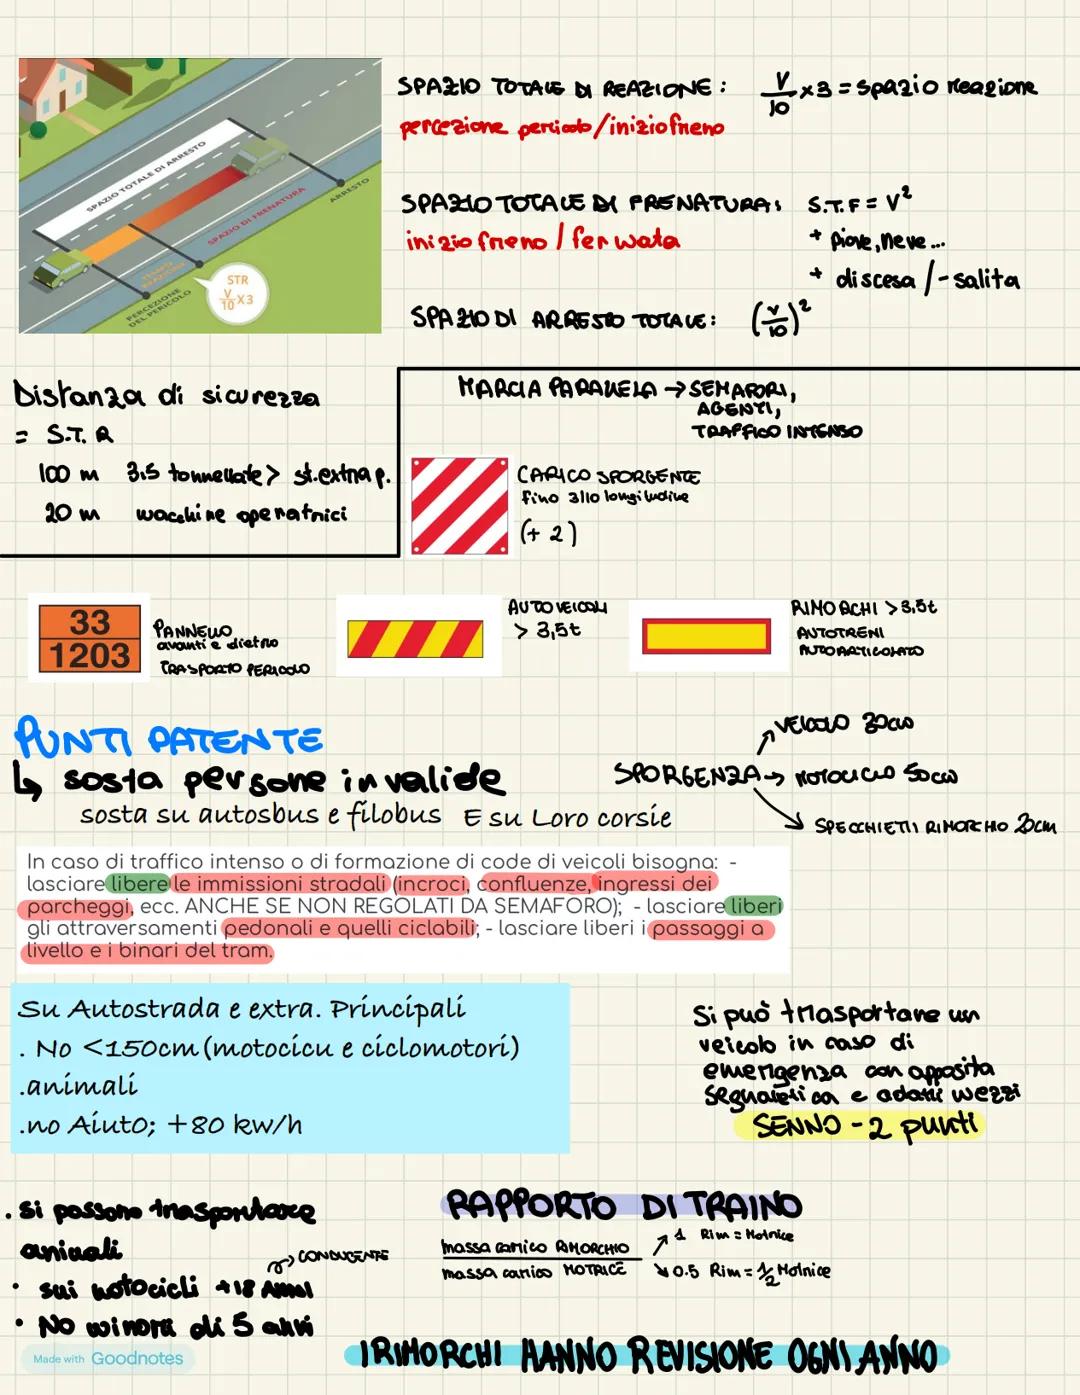 SPAZIO TOTALE DI ARRESTO
TEMPO REAZIONE
SPAZIO DI FRENATURA
ARRESTO
PERCEZIONE
DEL PERICOLO
STR
V/10 X 3
SPAZIO TOTALE DI REAZIONE: V/10 x3 = spazio reazione
percezione pericolo/inizio freno
SPAZIO TOTALE DI FRENATURA: S.T.F = V²
inizio freno / fermata
+ piove, neve...
+ discesa /- salita
SPAZIO DI ARRESTO TOTALE: (V/10)²
Distanza di sicurezza
= S.T.R
100 m 3.5 tonnellate > st.extrap.
20 m macchine operatrici
MARCIA PARALLELA → SEMAFORI,
AGENTI,
TRAFFICO INTENSO
CARICO SPORGENTE
fino 3/10 longitudine
(+ 2)
33
1203
PANNELLO
avanti e dietro
TRASPORTO PERICOLO
AUTOVEICOLI
> 3,5t
RIMORCHI > 3,5t
AUTOTRENI
AUTOARTICOLATO
PUNTI PATENTE
↳ sosta persone invalide
sosta su autosbus e filobus E su Loro corsie
VEICOLO 30cm
SPORGENZA → MOTOCICLO 50cm
SPECCHIETTI RIMORCHIO 20cm
In caso di traffico intenso o di formazione di code di veicoli bisogna: -
lasciare libere le immissioni stradali (incroci, confluenze, ingressi dei
parcheggi, ecc. ANCHE SE NON REGOLATI DA SEMAFORO); - lasciare liberi
gli attraversamenti pedonali e quelli ciclabili; - lasciare liberi i passaggi a
livello e i binari del tram.
Su Autostrada e extra. Principali
. No <150cm (motocicu e ciclomotori)
.animali
.no Aiuto; +80 kw/h
Si può trasportare un
veicolo in caso di
emergenza con apposita
segnaletica e adatti mezzi
SENNO - 2 punti
. si possono trasportare
animali
→ CONDUCENTE
• sui motocicli +18 Anni
• No minori di 5 anni
RAPPORTO DI TRAINO
massa carico RIMORCHIO
massa carico MOTRICE
↗ 1 Rim = Motrice
↘ 0.5 Rim = ½ Motrice
I RIMORCHI HANNO REVISIONE OGNI ANNO
Made with Goodnotes